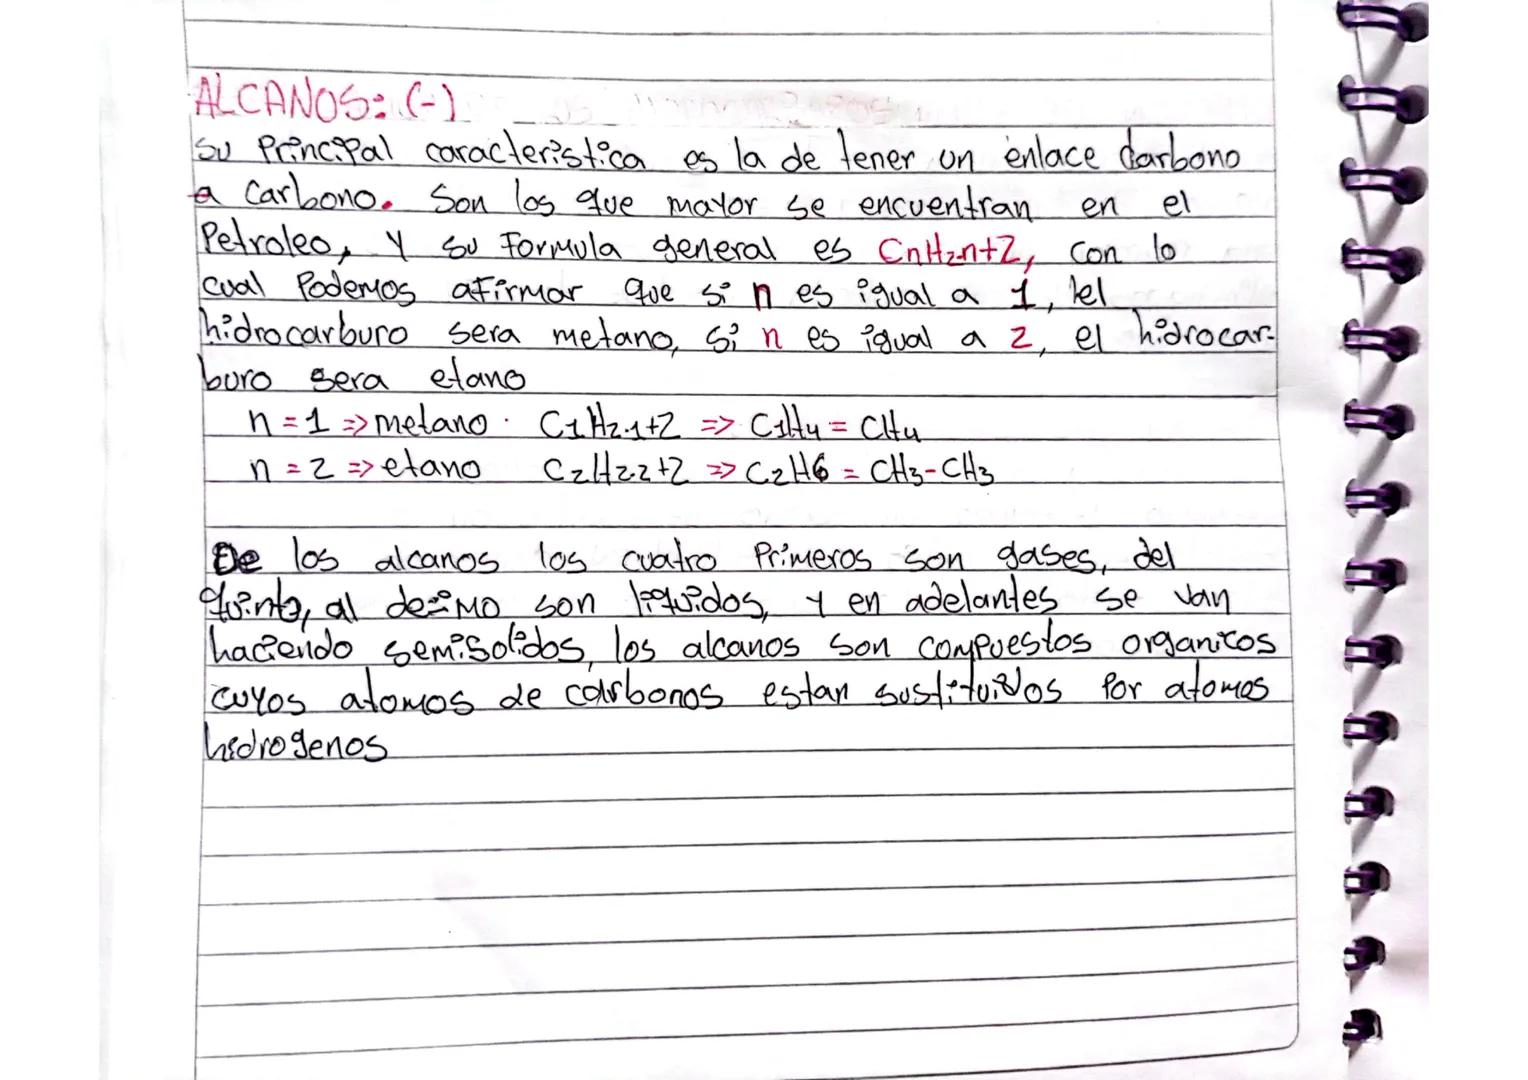 ALCANOS: (-)
Su Principal caracteristica es la de tener un enlace carbono
a carbono. Son los que mayor se encuentran en el
Petroleo, Y su Formula general es CnH2n+2, con lo
cual Podemos afirmar que si n es igual a 1, el
hidrocarburo sera metano, si n es igual a 2, el hidrocar-
buro sera etano
n = 1 => metano · C1H2·1+2 => C1H4 = CH4
n = 2 => etano C2H2·2+2 => C2H6 = CH3-CH3
De los alcanos los cuatro Primeros son gases, del
quinto, al decimo son liquidos, y en adelantes se van
haciendo semisolidos, los alcanos son compuestos organicos
cuyos atomos de carbonos estan sustituidos Por atomos
hidrogenos